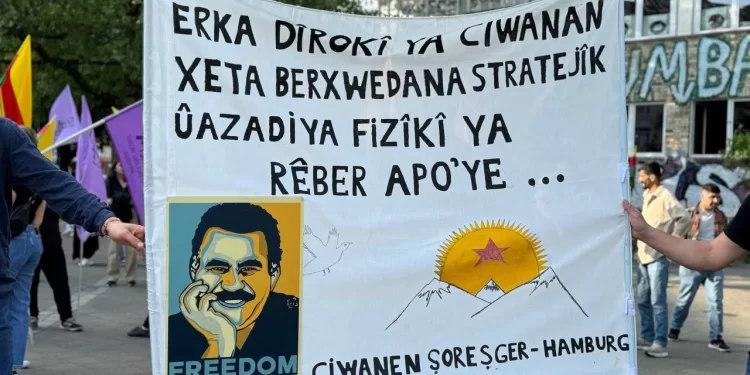 ERKA DÎROKÎ YA CIWANAN
XETA BERXWEDANA STRATEJÎK
ÛAZADIYA FIZÎKÎ YA
RÊBER APO'YE ...
FREEDOM
CIWANEN ŞOREŞGER-HAMBURG